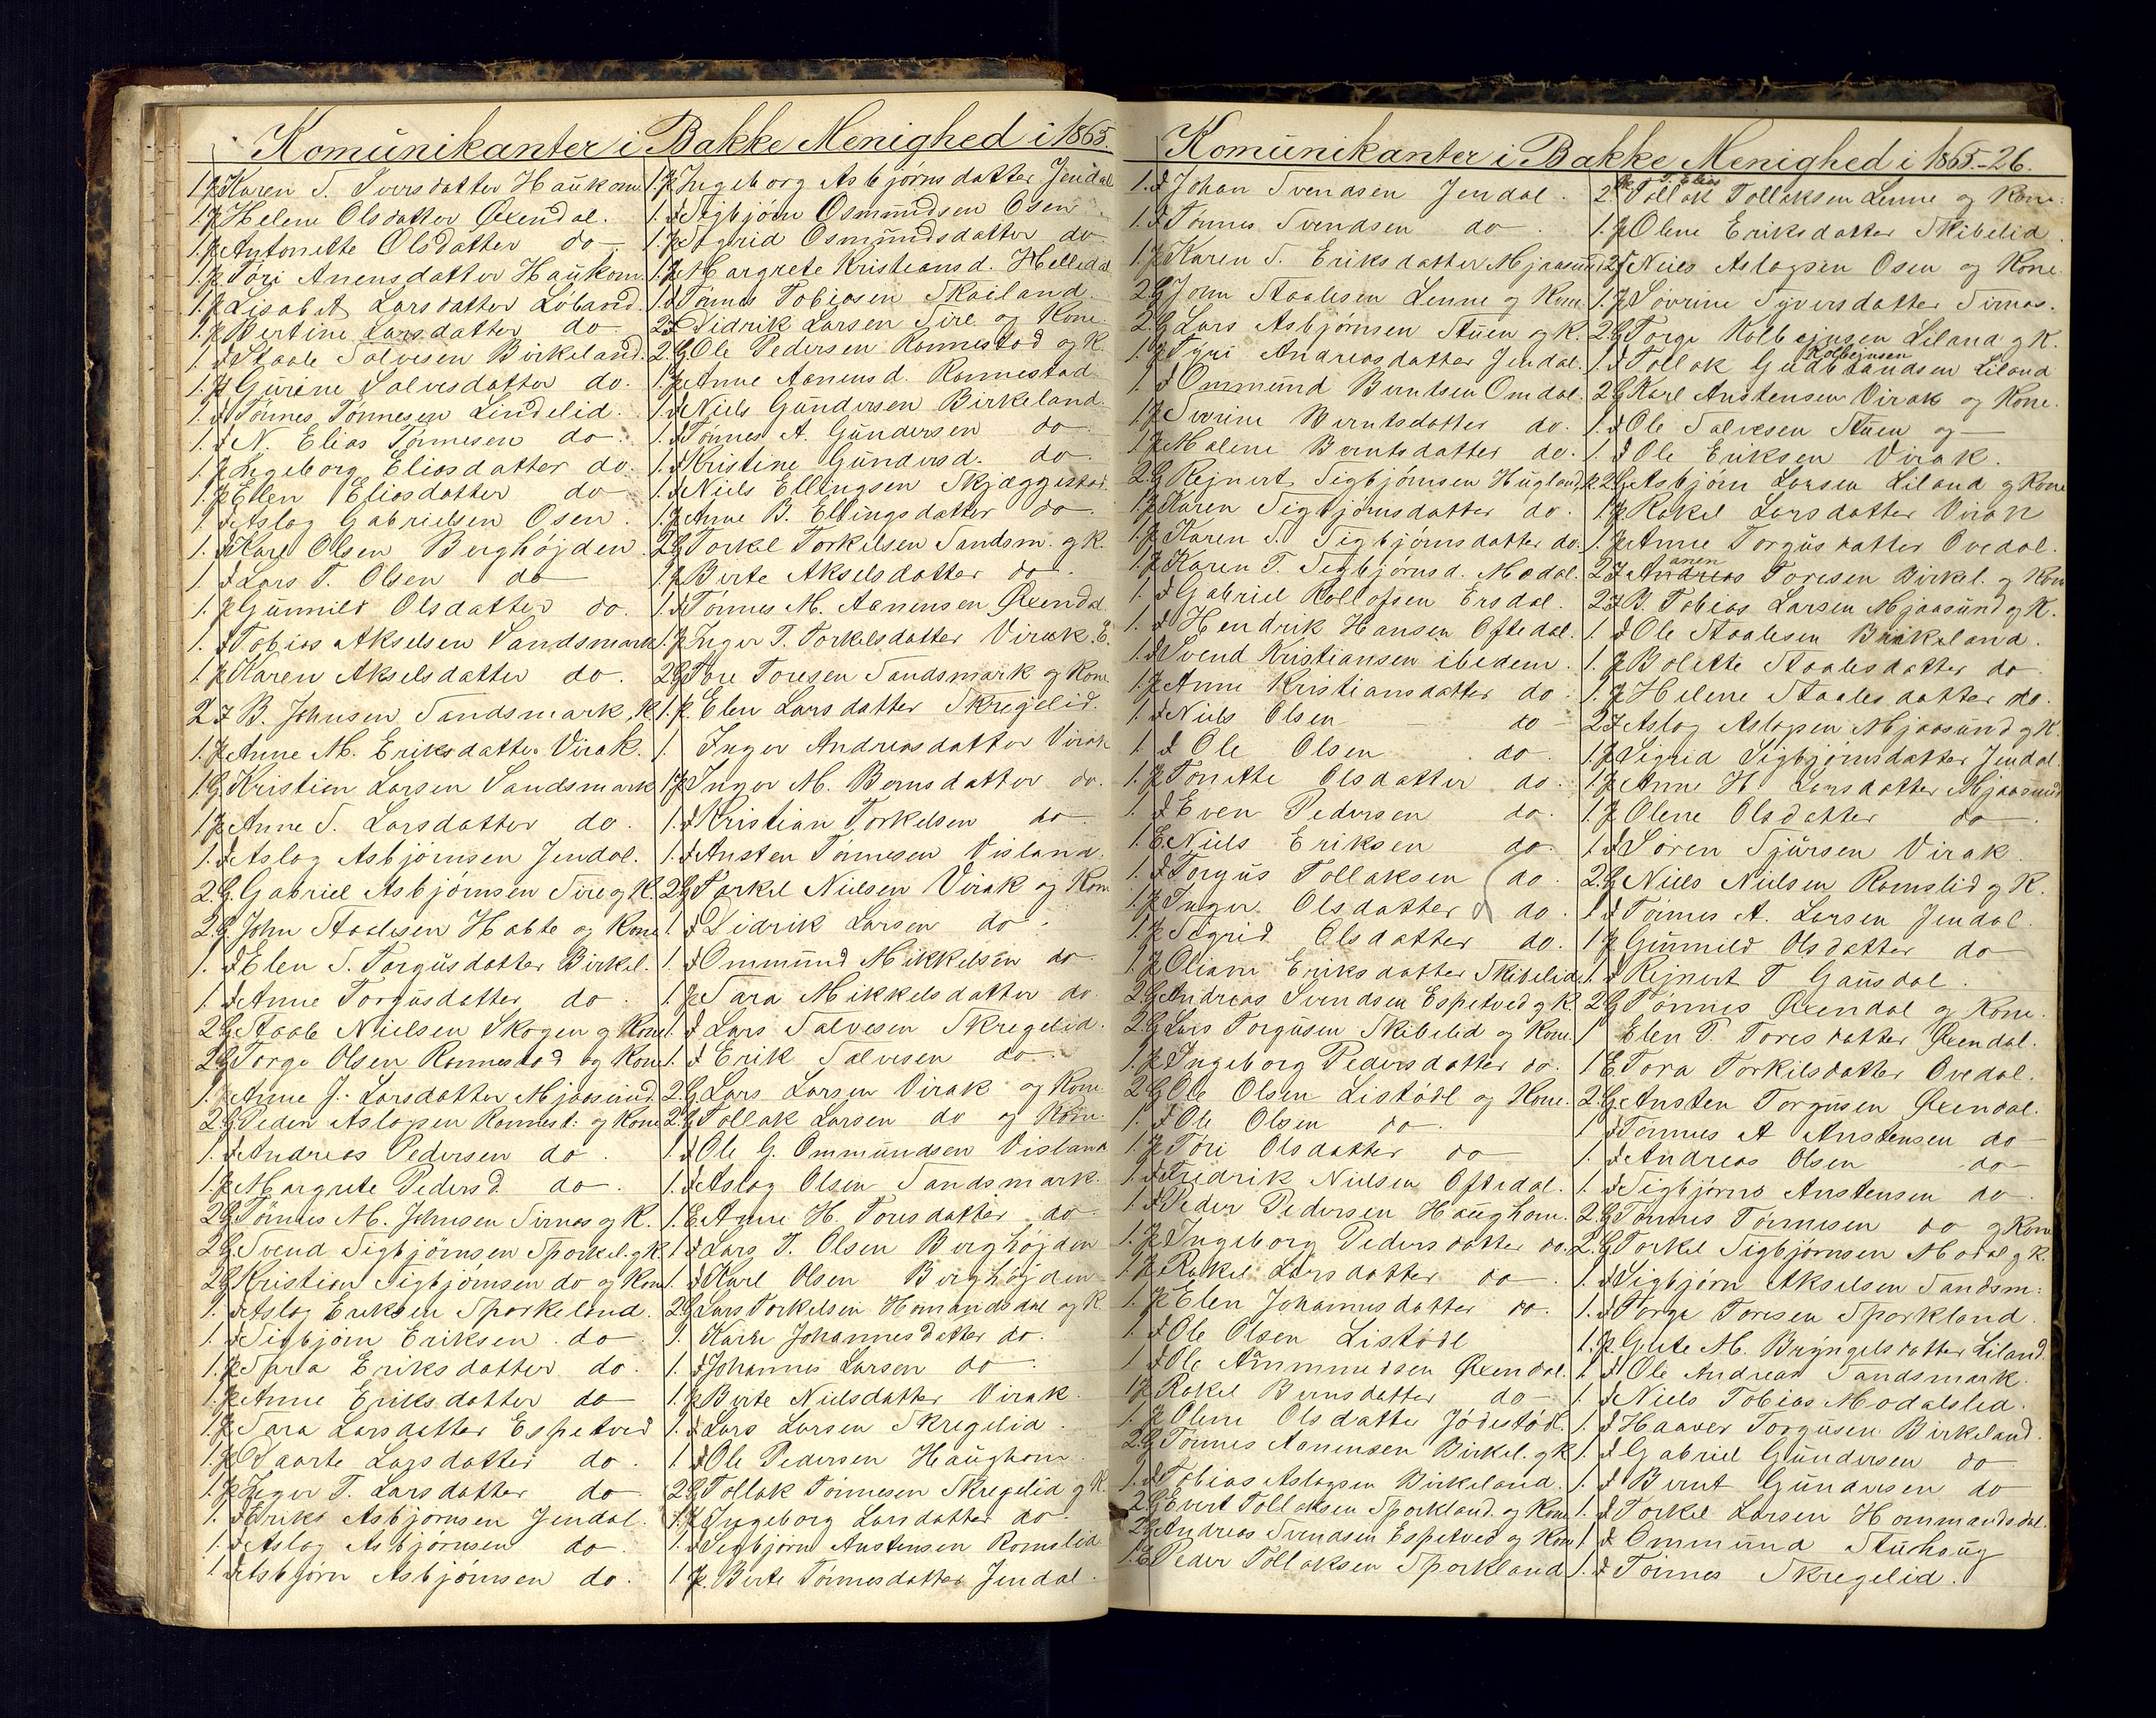 Komünikanter i Bakke Menighed i 1865.
1. p Karen S. Iversdatter Haükom.
1. p Helene Olsdatter Øxendal.
1. p Antonette Olsdatter do
1. p Tori Anensdatter Haükom.
1. p Lisabet Larsdatter Løband.
1. p Bertine Larsdatter do.
1. d Staale Salvesen Birkeland.
1. p Gurine Salvesdatter do.
1. d Tønnes Tønnesen Lindelid.
1. d N. Elias Tønnesen do.
1. p Ingeborg Eliasdatter do.
1. p Ellen Eliasdatter do
1. d Aslag Gabrielsen Osen.
1. d Karl Olsen Berghøjden
1. d Lars T. Olsen do
1. p Günnild Olsdatter do.
1. d Tobias Akselsen Sandsmark
1. p Karen Akselsdatter do.
2 F B. Johnsen Sandsmark, K
1. p Anne M. Eriksdatter Virak.
1 G Kristian Larsen Sandsmark
1 p Anne S. Larsdatter do.
1. d Aslag Asbjørnsen Jendal.
2. G. Gabriel Asbjørnsen Sire og K.
2. G John Staalesen Habte og Kone
1. d Elen S. Torgüsdatter Birkel.
1 d Anne Torgüsdatter do.
2 G Staale Nielsen Skogen og Kone
2 G Torge Olsen Ronnestad og Kone
1. p Anne J. Larsdatter Mjaasünd.
2 G Peder Aslagsen Ronnest. og Kone
1. d Andreas Pedersen do.
1. p Margrete Pedersd. do.
2 G Tønnes M. Johnsen Sirnes og K.
2 G Svend Sigbjørnsen Sporkel. og K
2 G Kristian Sigbjørnsen do og Kone
1. d Aslag Eriksen Sporkeland.
1. d Sigbjørn Eriksen do
1. p Sara Eriksdatter do.
1. p Anne Eriksdatter do
1. p Sara Larsdatter Espetved
1. p Daarte Larsdatter do.
1. p Inger T. Larsdatter do
1. d Eriks Asbjørnsen Jendal.
1. d Aslag Asbjørnsen do.
1 d Asbjørn Asbjørnsen do.
1. p Ingeborg Asbjørnsdatter Jendal
1. d Sigbjørn Osmündsen Osen
1. p Sigrid Osmündsdatter do.
1. p Margrete Kristiansd. Helledal
1. d Tønnes Tobiasen Skailand.
2 F Didrik Larsen Sire og Kone.
2. G Ole Pedersen Ronnestad og K.
1. p Anne Aanensd. Ronnestad
1. d Niels Gündersen Birkeland.
1. d Tønnes A. Gündersen do
1. d Kristine Gündersd. do
1. d Niels Ellingsen Skjæggestad.
1. p Anne B. Ellingsdatter do
2 G Torkel Torkelsen Sandsm. og K.
1. p Berte Akselsdatter do.
1. d Tønnes M. Aanensen Øxendal.
1. p Inger T. Torkelsdatter Virak. E.
2 G Tore Toresen Sandsmark og Kone
1. p. Elen Larsdatter Skregelid.
1 Inger Andreasdatter Virak
1 p Inger M. Bernsdatter do.
1. d Kristian Torkelsen do
1. d Austen Tønnesen Visland.
2 G Torkel Nielsen Virak og Kone
1 d Didrik Larsen do.
1. d Ommünd Mikkelsen do.
1. p Sara Mikkelsdatter do.
1. d Lars Salvesen Skregelid.
1. d Erik Salvesen do
2. G Lars Larsen Virak og Kone.
2. G Tollak Larsen do og Kone.
1. d Ole G. Ommündsen Visland
1. d Aslag Olsen Sandsmark.
1. E Anne H. Toresdatter do
1. d Lars T. Olsen Berghøjden
1. d Karl Olsen Berghøjden
2 G Lars Torkelsen Homandsdal og K
1. Karen Johannesdatter do.
1. d Johannes Larsen do
1. p Berte Nielsdatter Virak.
1. d Lars Larsen Skregelid.
1 d Ole Pedersen Haüghom
2 G Tollak Tønnesen Skregelid og K
1. p Ingeborg Larsdatter do.
1. d Sigbjørn Austensen Romslid
1. p. Berte Tønnesdatter Jendal.
Komünikanter i Bakke Menighed i 1865.- 26.
1. d Johan Svendsen Jendal.
1. d Tønnes Svendsen do.
1 p Karen S. Eriksdatter Mjaasünd
2 G John Staalesen Lenne og Kone
2. G Lars Asbjørnsen Stüen og K.
1. p Tyri Andreasdatter Jendal.
1 d Ommünd Berntsen Omdal.
1 p Severine Berntsdatter do.
1 p Malene Berntsdatter do.
2. G Rejnert Sigbjørnsen Hügland, K.
1 p Karen Sigbjørnsdatter do.
1. p Karen S. Sigbjørnsdatter do.
1. p Karen T. Sigbjørnsd. Modal.
1. d Gabriel Rollofsen Ersdal.
1. d Hendrik Hansen Oftedal.
1. d Svend Kristiansen ibidem.
1 p Anne Kristiansdatter do
1. d Niels Olsen do
1 d Ole Olsen do.
1. p Tonette Olsdatter do.
1. d Even Pedersen do.
1 E Niels Eriksen do.
1. d Torgüs Tollaksen do.
1. p Inger Olsdatter do.
1. p Sigrid Olsdatter do.
1. p Oliane Eriksdatter Skibelid.
2 G Andreas Svendsen Espetved og K.
2 G Lars Torgüsen Skibelid og Kone.
1. p Ingeborg Pedersdatter do.
2 G Ole Olsen Listødl og Kone.
1. d Ole Olsen do.
1 p Tori Olsdatter do
1. d Fredrik Nielsen Oftedal.
1. d Peder Pedersen Haüghom.
1. p Ingeborg Pedersdatter do.
1 p Rakel Larsdatter do.
1. p Elen Johannesdatter do.
1. d Ole Olsen Listødl
1 d Ole Ammundsen Øxendal.
1 p Rakel Bernsdatter do
1. p Olene Olsdatter Jødestødl.
2 G Tønnes Aanensen Birkel. og K
1. d Tobias Aslagsen Birkeland.
2 G Evert Tollaksen Sporkland. og Kone
2 G Andreas Svendsen Espetved og Kone
1. E Peder Tollaksen Sporkland
T. Elias
2. Tollak Tollaksen Lenne og Kone.
1. p Olene Eriksdatter Skibelid.
2 F Niels Aslagsen Osen og Kone.
1. p Søvrine Syversdatter Sirnes.
2. G Torge Kolbejnsen Liland og K.
Kolbejnsen
1. d Tollak Gudbrandsen Liland
2 G Karl Austensen Virak og Kone.
1. d Ole Salvesen Stüen og
1. d Ole Eriksen Virak.
2. G Asbjørn Larsen Liland og Kone
1 p Rakel Larsdatter Virak
1. p Anne Torgüsdatter Ovedal.
anen
2 F Andreas Toresen Birkel. og Kone
2 F B. Tobias Larsen Mjaasünd og K.
1. d Ole Staalesen Birkeland.
1. p Bolette Staalesdatter do
1. p Helene Staalesdatter do.
2 F Aslag Aslagsen Mjaasünd og K.
1. p Sigrid Sigbjørnsdatter Jendal.
1 p Anne H. Larsdatter Mjaasünd
1 p Olene Olsdatter do.
1 d Søren Sjürsen Virak.
2. G Niels Nielsen Romslid og K.
1 d Tønnes A. Larsen Jendal.
1 p Günnild Olsdatter do
1. d Rejnert T Gaüsdal.
2 G Tønnes Øxendal og Kone.
1 Elen T. Toresdatter Øxendal.
1 E Tora Torkilsdatter Ovedal.
2. G Austen Torgüsen Øxendal.
1 d Tønnes A Austensen do
1. d Andreas Olsen do
1. d Sigbjørn Austensen do.
2. G Tønnes Tønnesen do og Kone
2. G Torkel Sigbjørnsen Modal og K.
1. d Sigbjørn Akselsen Sandsm:
1. d Torge Toresen Sporkland.
1. p. Gute M. Bryngelsdatter Liland.
1. d Ole Andreas Sandsmark.
1. d Niels Tobias Modalslid.
1. d Haaver Torgüsen Birkeland.
1. d Gabriel Gündersen do
1. d Bernt Gündersen do
1. d Torkel Larsen Hommandsdal.
1 d Ommünd Stühaüg
1. d Tønnes Skregelid.